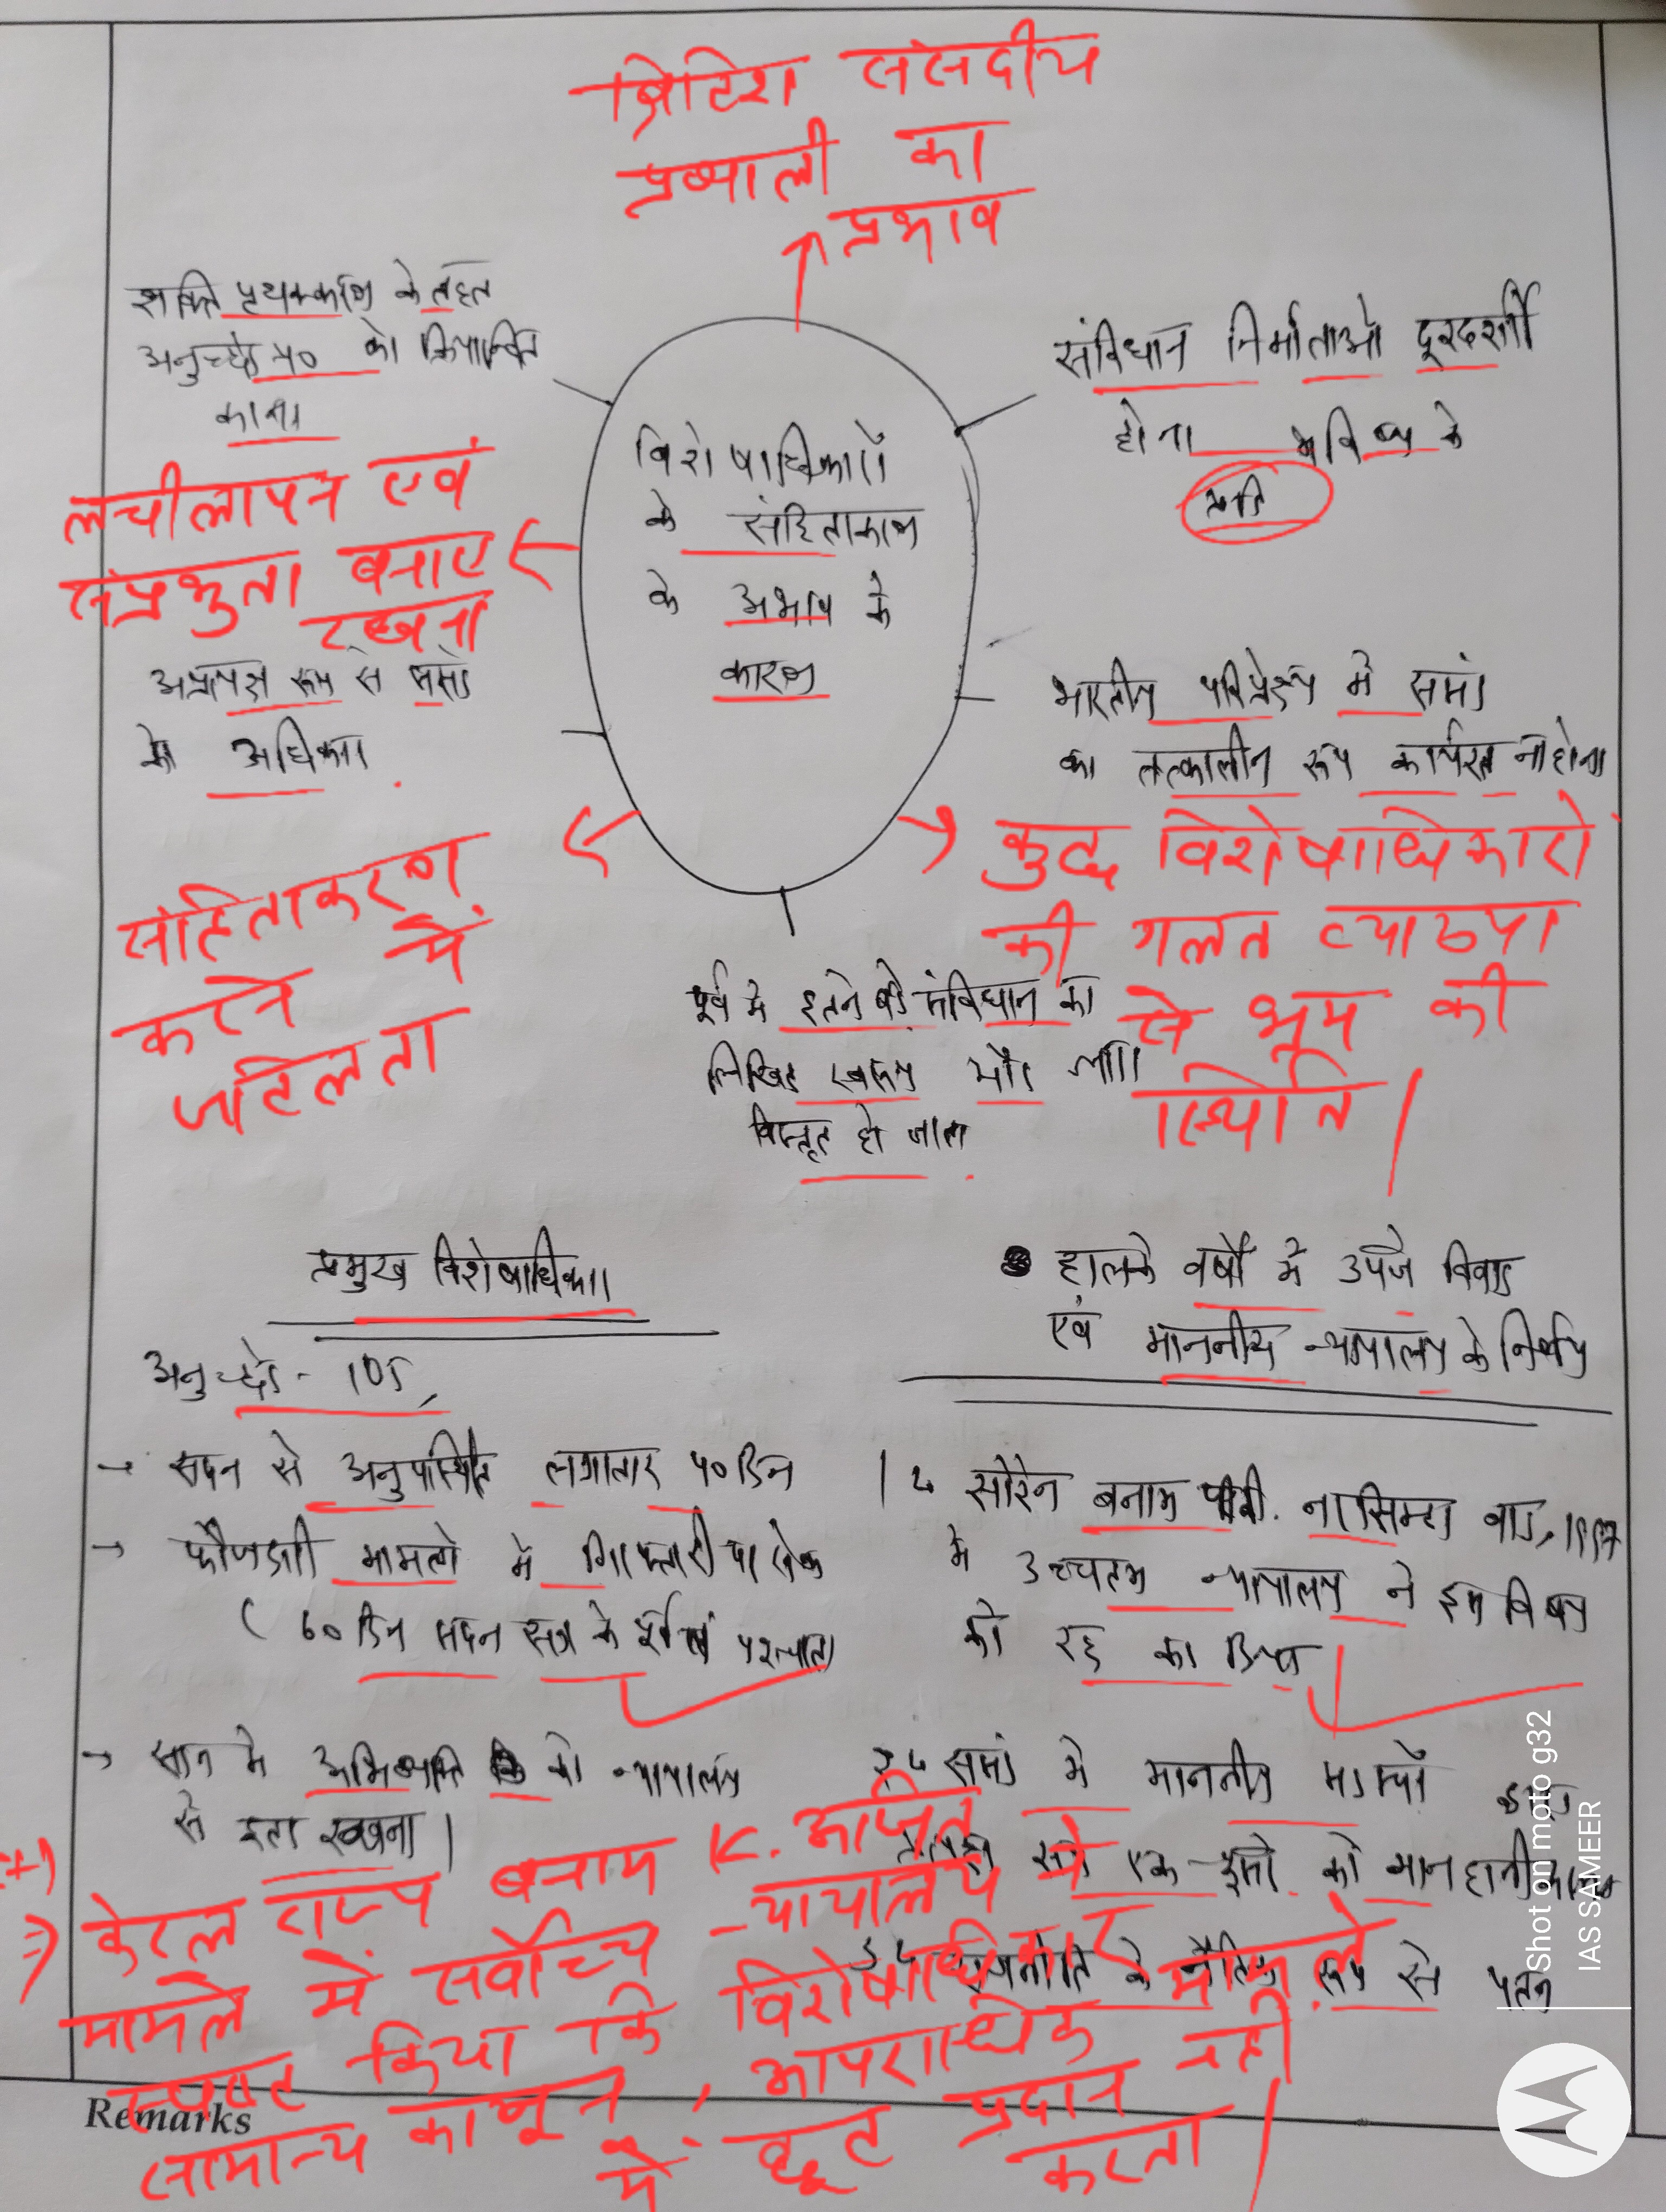 ब्रिटिश संसदीय
प्रणाली का
प्रभाव
शक्ति पृथक्करण के तहत
अनुच्छेद 50 को क्रियान्वित
करना
लचीलापन एवं
संप्रभुता बनाए
रखना
अप्रत्यक्ष रूप से
अधिकार
संहिताकरण
करने में
जटिलता
विशेषाधिकारों
के संहिताकरण
के अभाव के
कारण
संविधान निर्माताओं दूरदर्शी
होना भविष्य के
प्रति
भारतीय परिप्रेक्ष्य में
का तत्कालीन रूप कार्यरत ना होना
कुछ विशेषाधिकारों
की गलत व्याख्या
से भ्रम की
स्थिति।
पूर्व में इतने बड़े संविधान का
लिखित स्वरूप और
विस्तृत हो जाता
प्रमुख विशेषाधिकार
अनुच्छेद - 105
→ सदन से अनुपस्थिति लगातार 40 दिन
→ फौजदारी मामलो में गिरफ्तारी पर रोक
( 60 दिन सदन सत्र के पूर्व एवं पश्चात)
→ सदन मे अभिव्यक्ति को न्यायालय
से रखना।
हालके वर्षों में उपजे विवाद
एवं माननीय न्यायालय के निर्णय
सोरेन बनाम पी.वी. नरसिम्हा वाद, 1997
में उच्चतम न्यायालय ने इस विषय
को रद्द कर दिया
में माननीय
एक-दूसरे को मानहानी
राजनीति के नैतिक रूप से पतन
(+)
⇒ केरल राज्य बनाम K. अजित
मामले में सर्वोच्च न्यायालय ने
स्पष्ट किया कि विशेषाधिकार मामले
सामान्य कानून, आपराधिक
में छूट प्रदान नहीं
करता।
Remarks
Shot on moto g32
IAS SAMEER